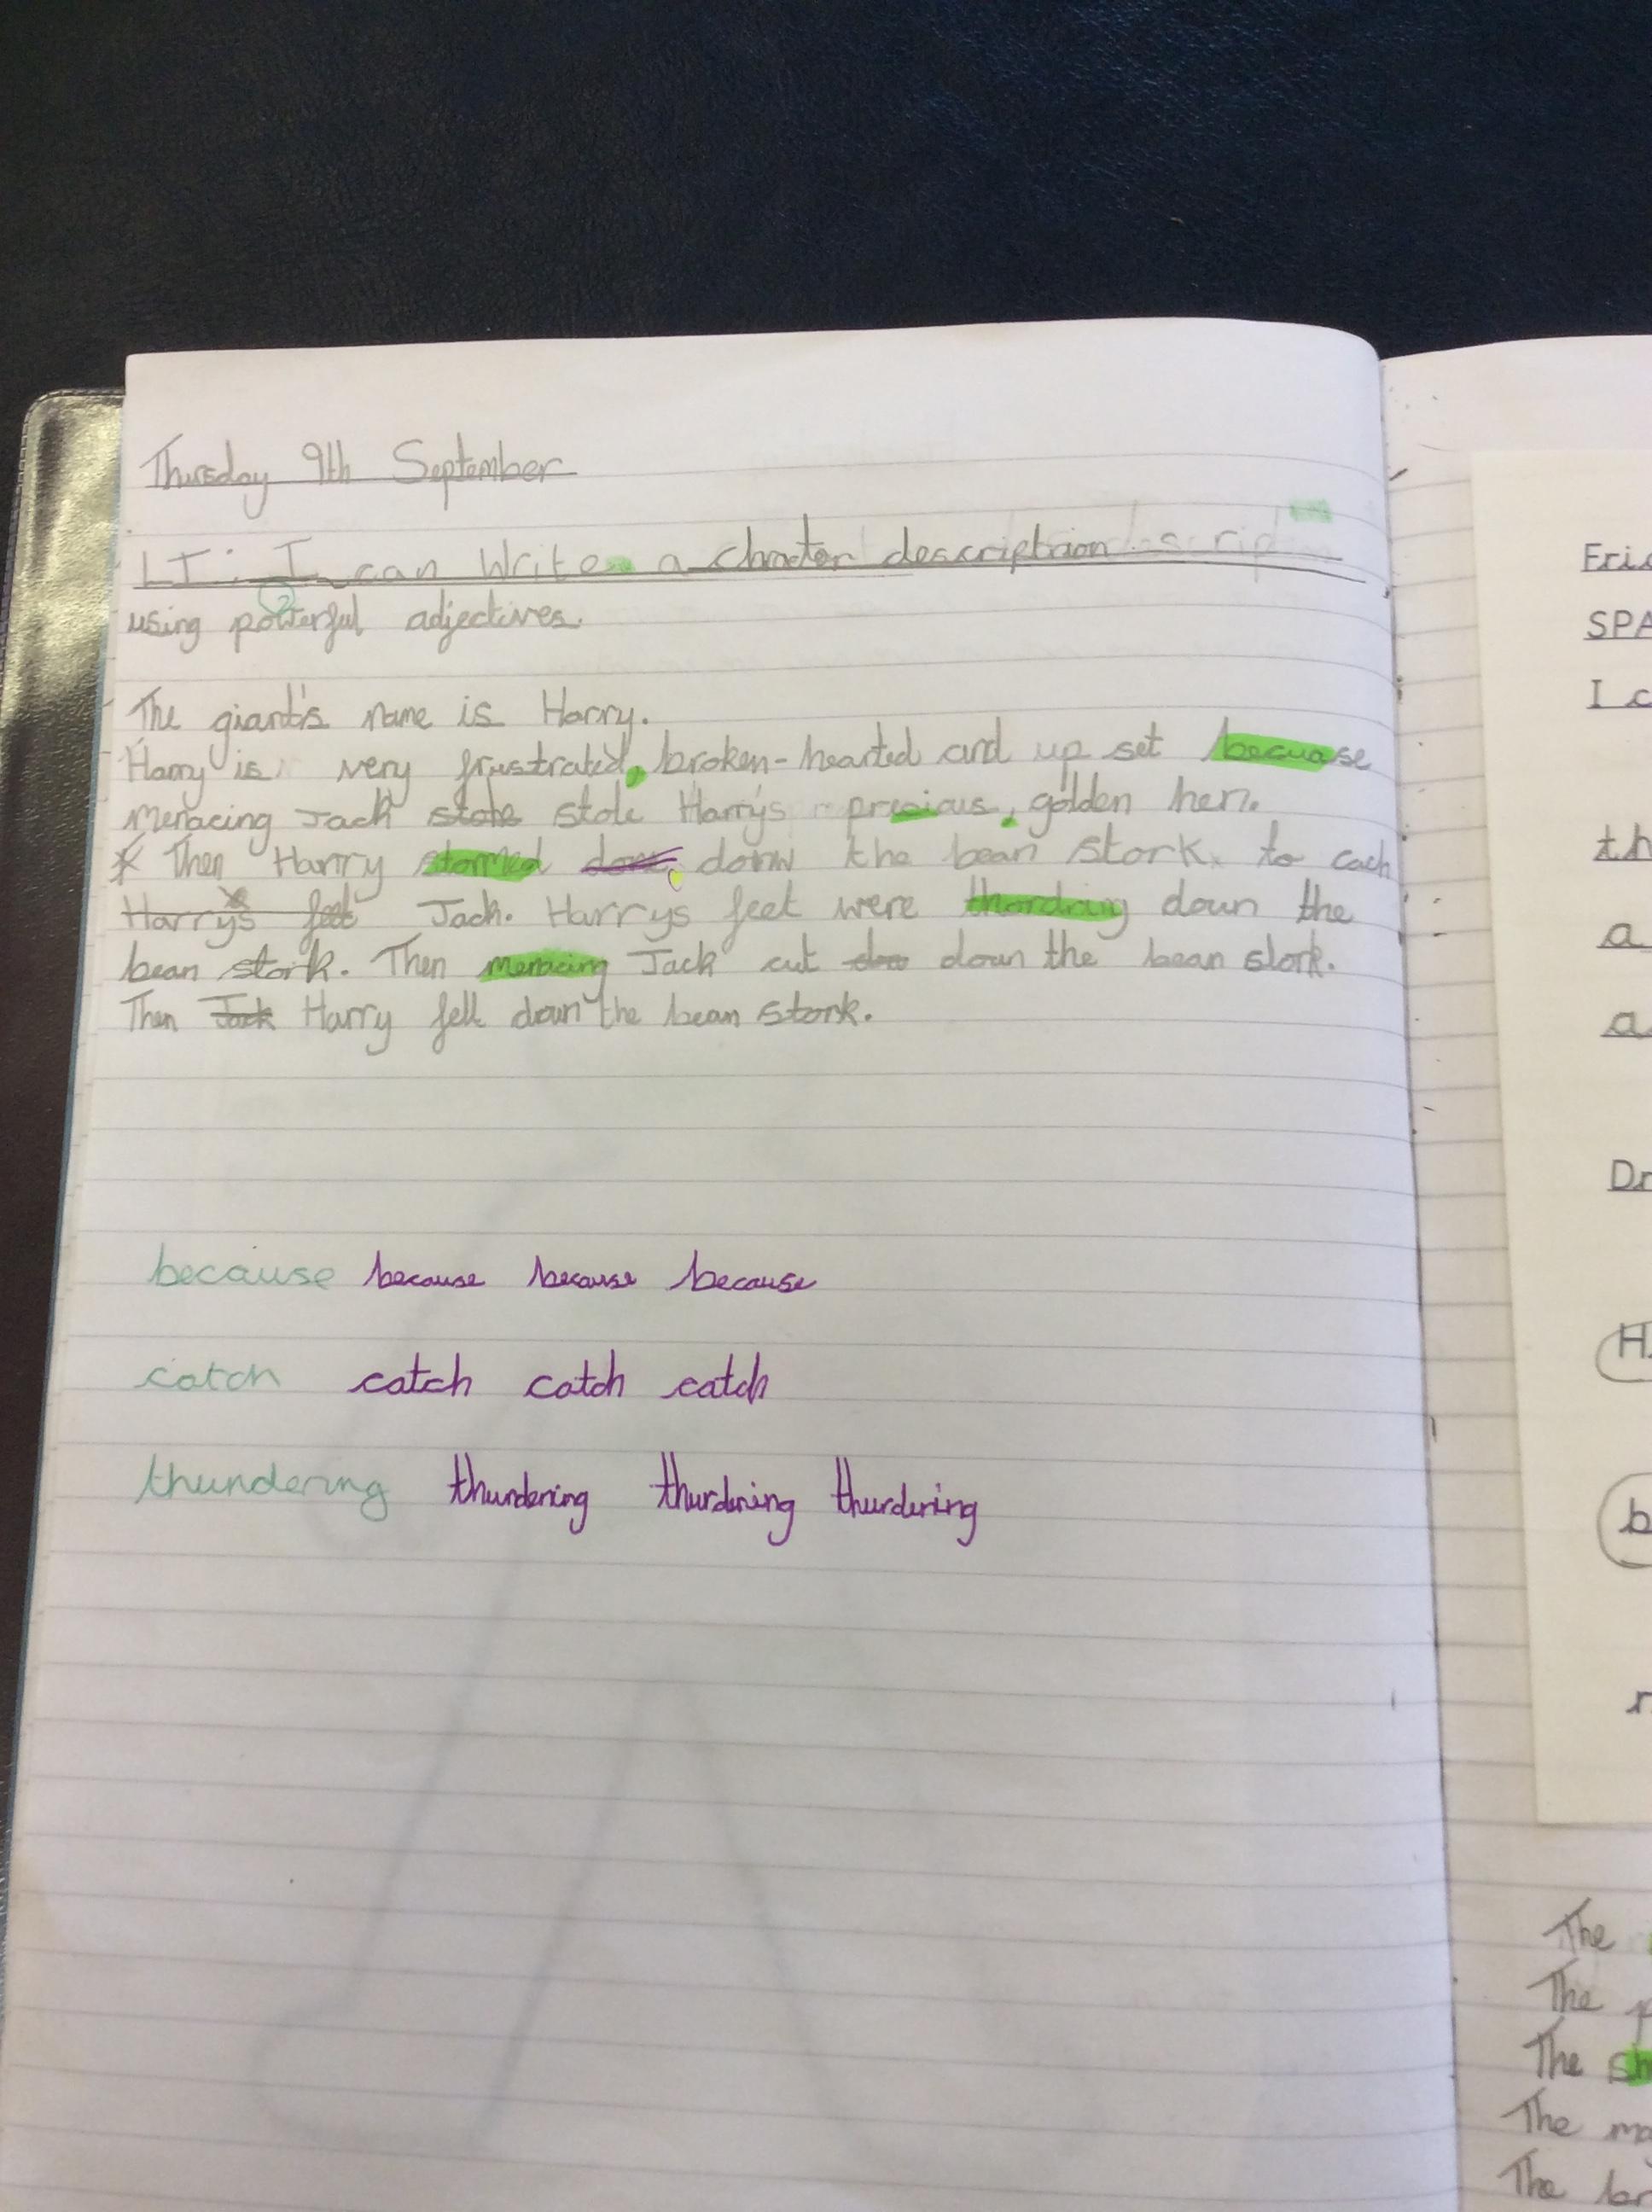 Thursday 9th September
LI: I can Write a charater description
using powerful adjectives.
The giant's name is Harry.
Harry is very frustrated, broken-hearted and up set becuase
menacing Jack stole stole Harry's precious, golden hen.
* Then Harry stormed down the bean stork. to cach
Harry's feet Jack. Harrys feet were thordring down the
bean stork. Then menacing Jack cut down the bean stork.
Then Jack Harry fell down the bean stork.
because because because because
catch catch catch catch
thundering thundering thundering thundering
SPA
I c
th
a
a
Dr
H
b
r
The
The p
The sh
The ma
The